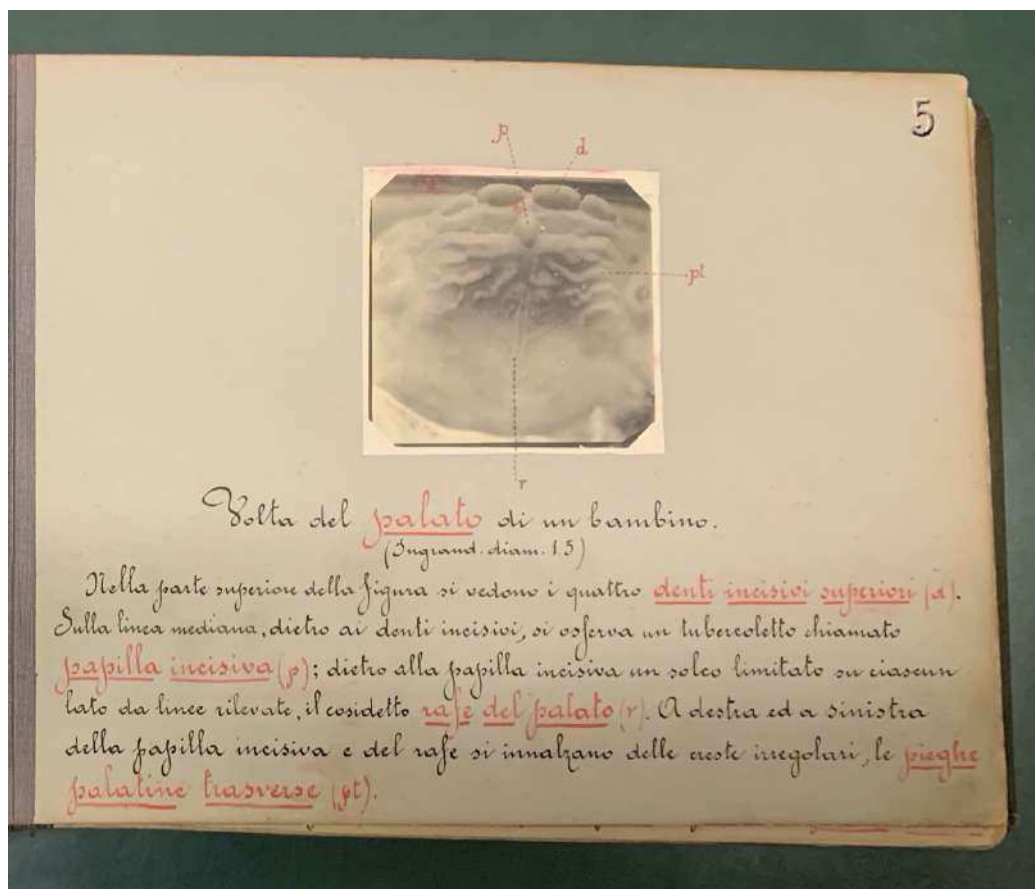 5
p
d
pt
r
Volta del palato di un bambino.
(Ingrand. diam. 1.5)
Nella parte superiore della figura si vedono i quattro denti incisivi superiori (d).
Sulla linea mediana, dietro ai denti incisivi, si osserva un tubercoletto chiamato
papilla incisiva (p); dietro alla papilla incisiva un solco limitato su ciascun
lato da linee rilevate, il cosidetto rafe del palato (r). A destra ed a sinistra
della papilla incisiva e del rafe si innalzano delle creste irregolari, le pieghe
palatine trasverse (pt).